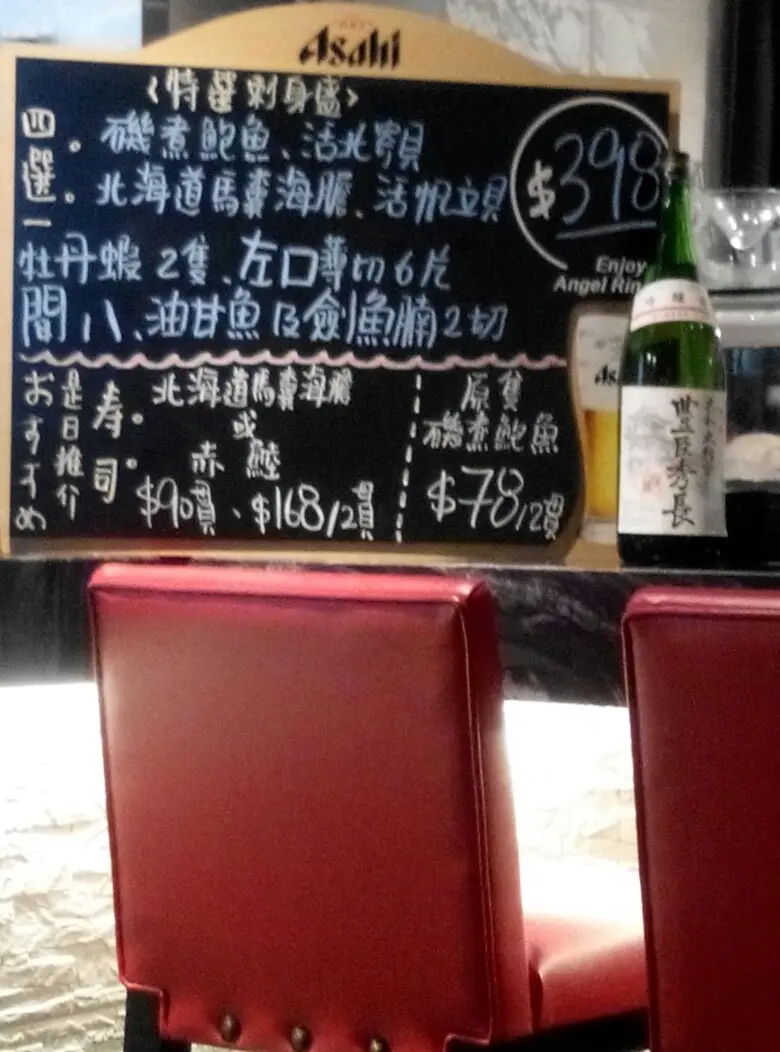 Asahi
〈特選刺身盛〉
四選一
磯煮鮑魚、活北寄貝
北海道馬糞海膽、活帆立貝
$398
牡丹蝦2隻、左口薄切6片
間八、油甘魚及劍魚腩2切
Enjoy
Angel Rin
おすすめ
是日推介
寿司
北海道馬糞海膽
或
赤鯥
$90貫、$168/2貫
原隻
磯煮鮑魚
$78/2貫
豊臣秀長